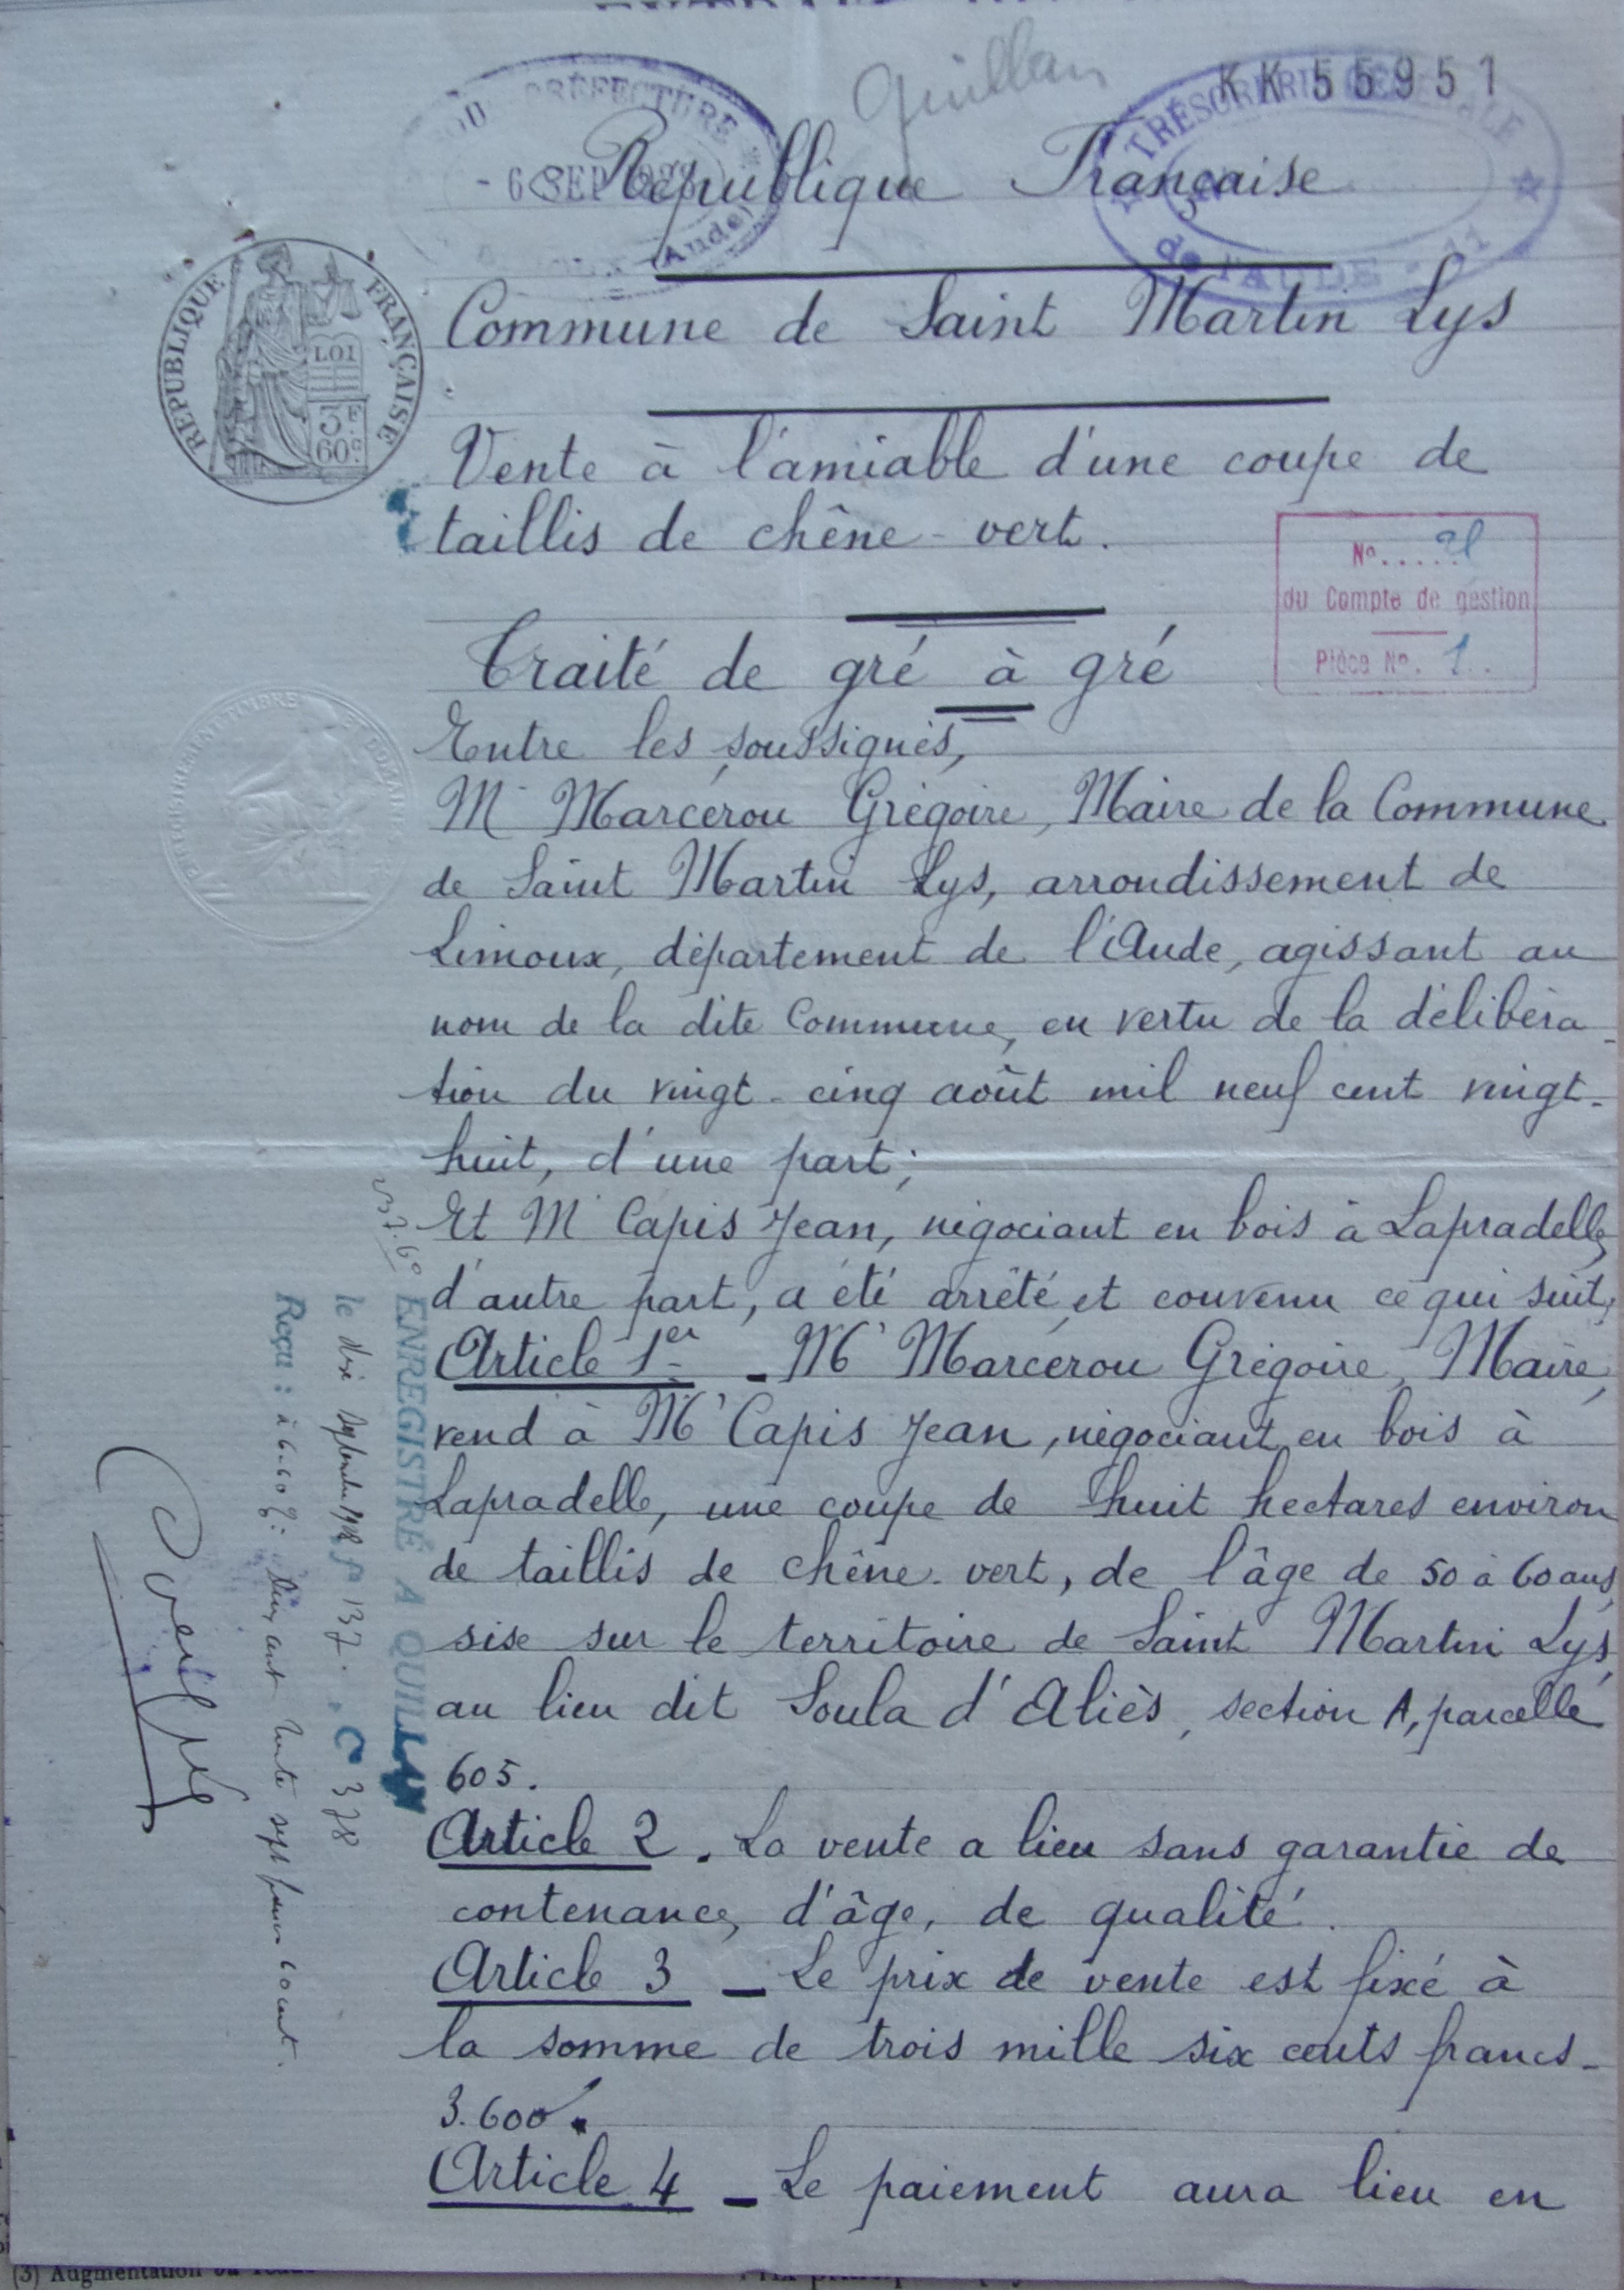 Quillan
KK 55951
SOUS PRÉFECTURE
- 6 SEP 1928
(Aude)
TRÉSORERIE GÉNÉRALE
de l'AUDE - 11
République Française
RÉPUBLIQUE FRANÇAISE
LOI
3F
60c
Commune de Saint Martin Lys
Vente à l'amiable d'une coupe de
taillis de chêne-vert.
No.....
du Compte de gestion
Pièce No. 1..
Traité de gré à gré
Entre les soussignés,
Mr Marcérou Grégoire, Maire de la Commune
de Saint Martin Lys, arrondissement de
Limoux, département de l'Aude, agissant au
nom de la dite Commune, en vertu de la délibéra-
tion du vingt-cinq août mil neuf cent vingt-
huit, d'une part;
Et Mr Capis Jean, négociant en bois à Lapradelle,
d'autre part, a été arrêté et convenu ce qui suit:
Article 1er - Mr Marcérou Grégoire, Maire,
vend à Mr Capis Jean, négociant en bois à
Lapradelle, une coupe de huit hectares environ
de taillis de chêne-vert, de l'âge de 50 à 60 ans,
sise sur le territoire de Saint Martin Lys,
au lieu dit Soula d'Aliès, section A, parcelle
605.
Article 2. La vente a lieu sans garantie de
contenance, d'âge, de qualité.
Article 3 - Le prix de vente est fixé à
la somme de trois mille six cents francs-
3.600f.
Article 4 - Le paiement aura lieu en
237.60
ENREGISTRÉ A QUILLAN
le dix septembre 1928 Fo 137. C 378
Reçu : à 6.60 %: deux cent trente sept francs 60 cent.
(3) Augmentation ou